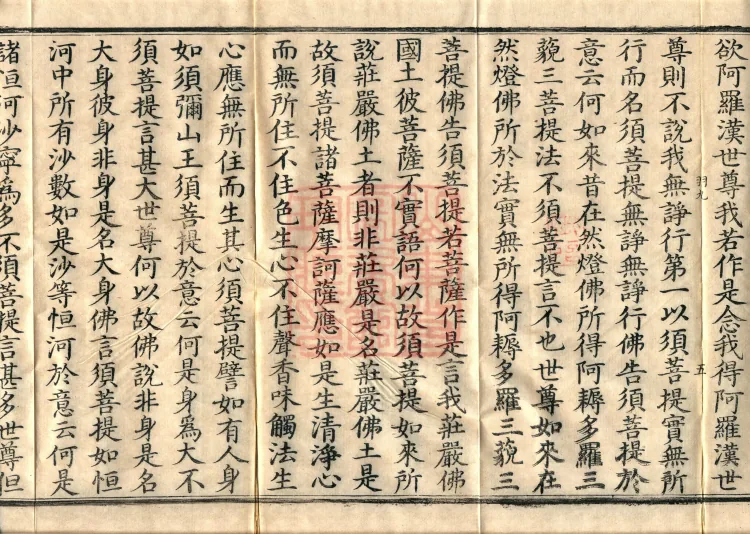 欲阿羅漢世尊我若作是念我得阿羅漢世
羽九 五
尊則不說我無諍行第一以須菩提實無所
行而名須菩提無諍無諍行佛告須菩提於
意云何如來昔在然燈佛所得阿耨多羅三
藐三菩提法不須菩提言不也世尊如來在
然燈佛所於法實無所得阿耨多羅三藐三
菩提佛告須菩提若菩薩作是言我莊嚴佛
國土彼菩薩不實語何以故須菩提如來所
說莊嚴佛土者則非莊嚴是名莊嚴佛土是
故須菩提諸菩薩摩訶薩應如是生清淨心
而無所住不住色生心不住聲香味觸法生
心應無所住而生其心須菩提譬如有人身
如須彌山王須菩提於意云何是身為大不
須菩提言甚大世尊何以故佛說非身是名
大身彼身非身是名大身佛言須菩提如恒
河中所有沙數如是沙等恒河於意云何是
諸恒河沙寧為多不須菩提言甚多世尊但